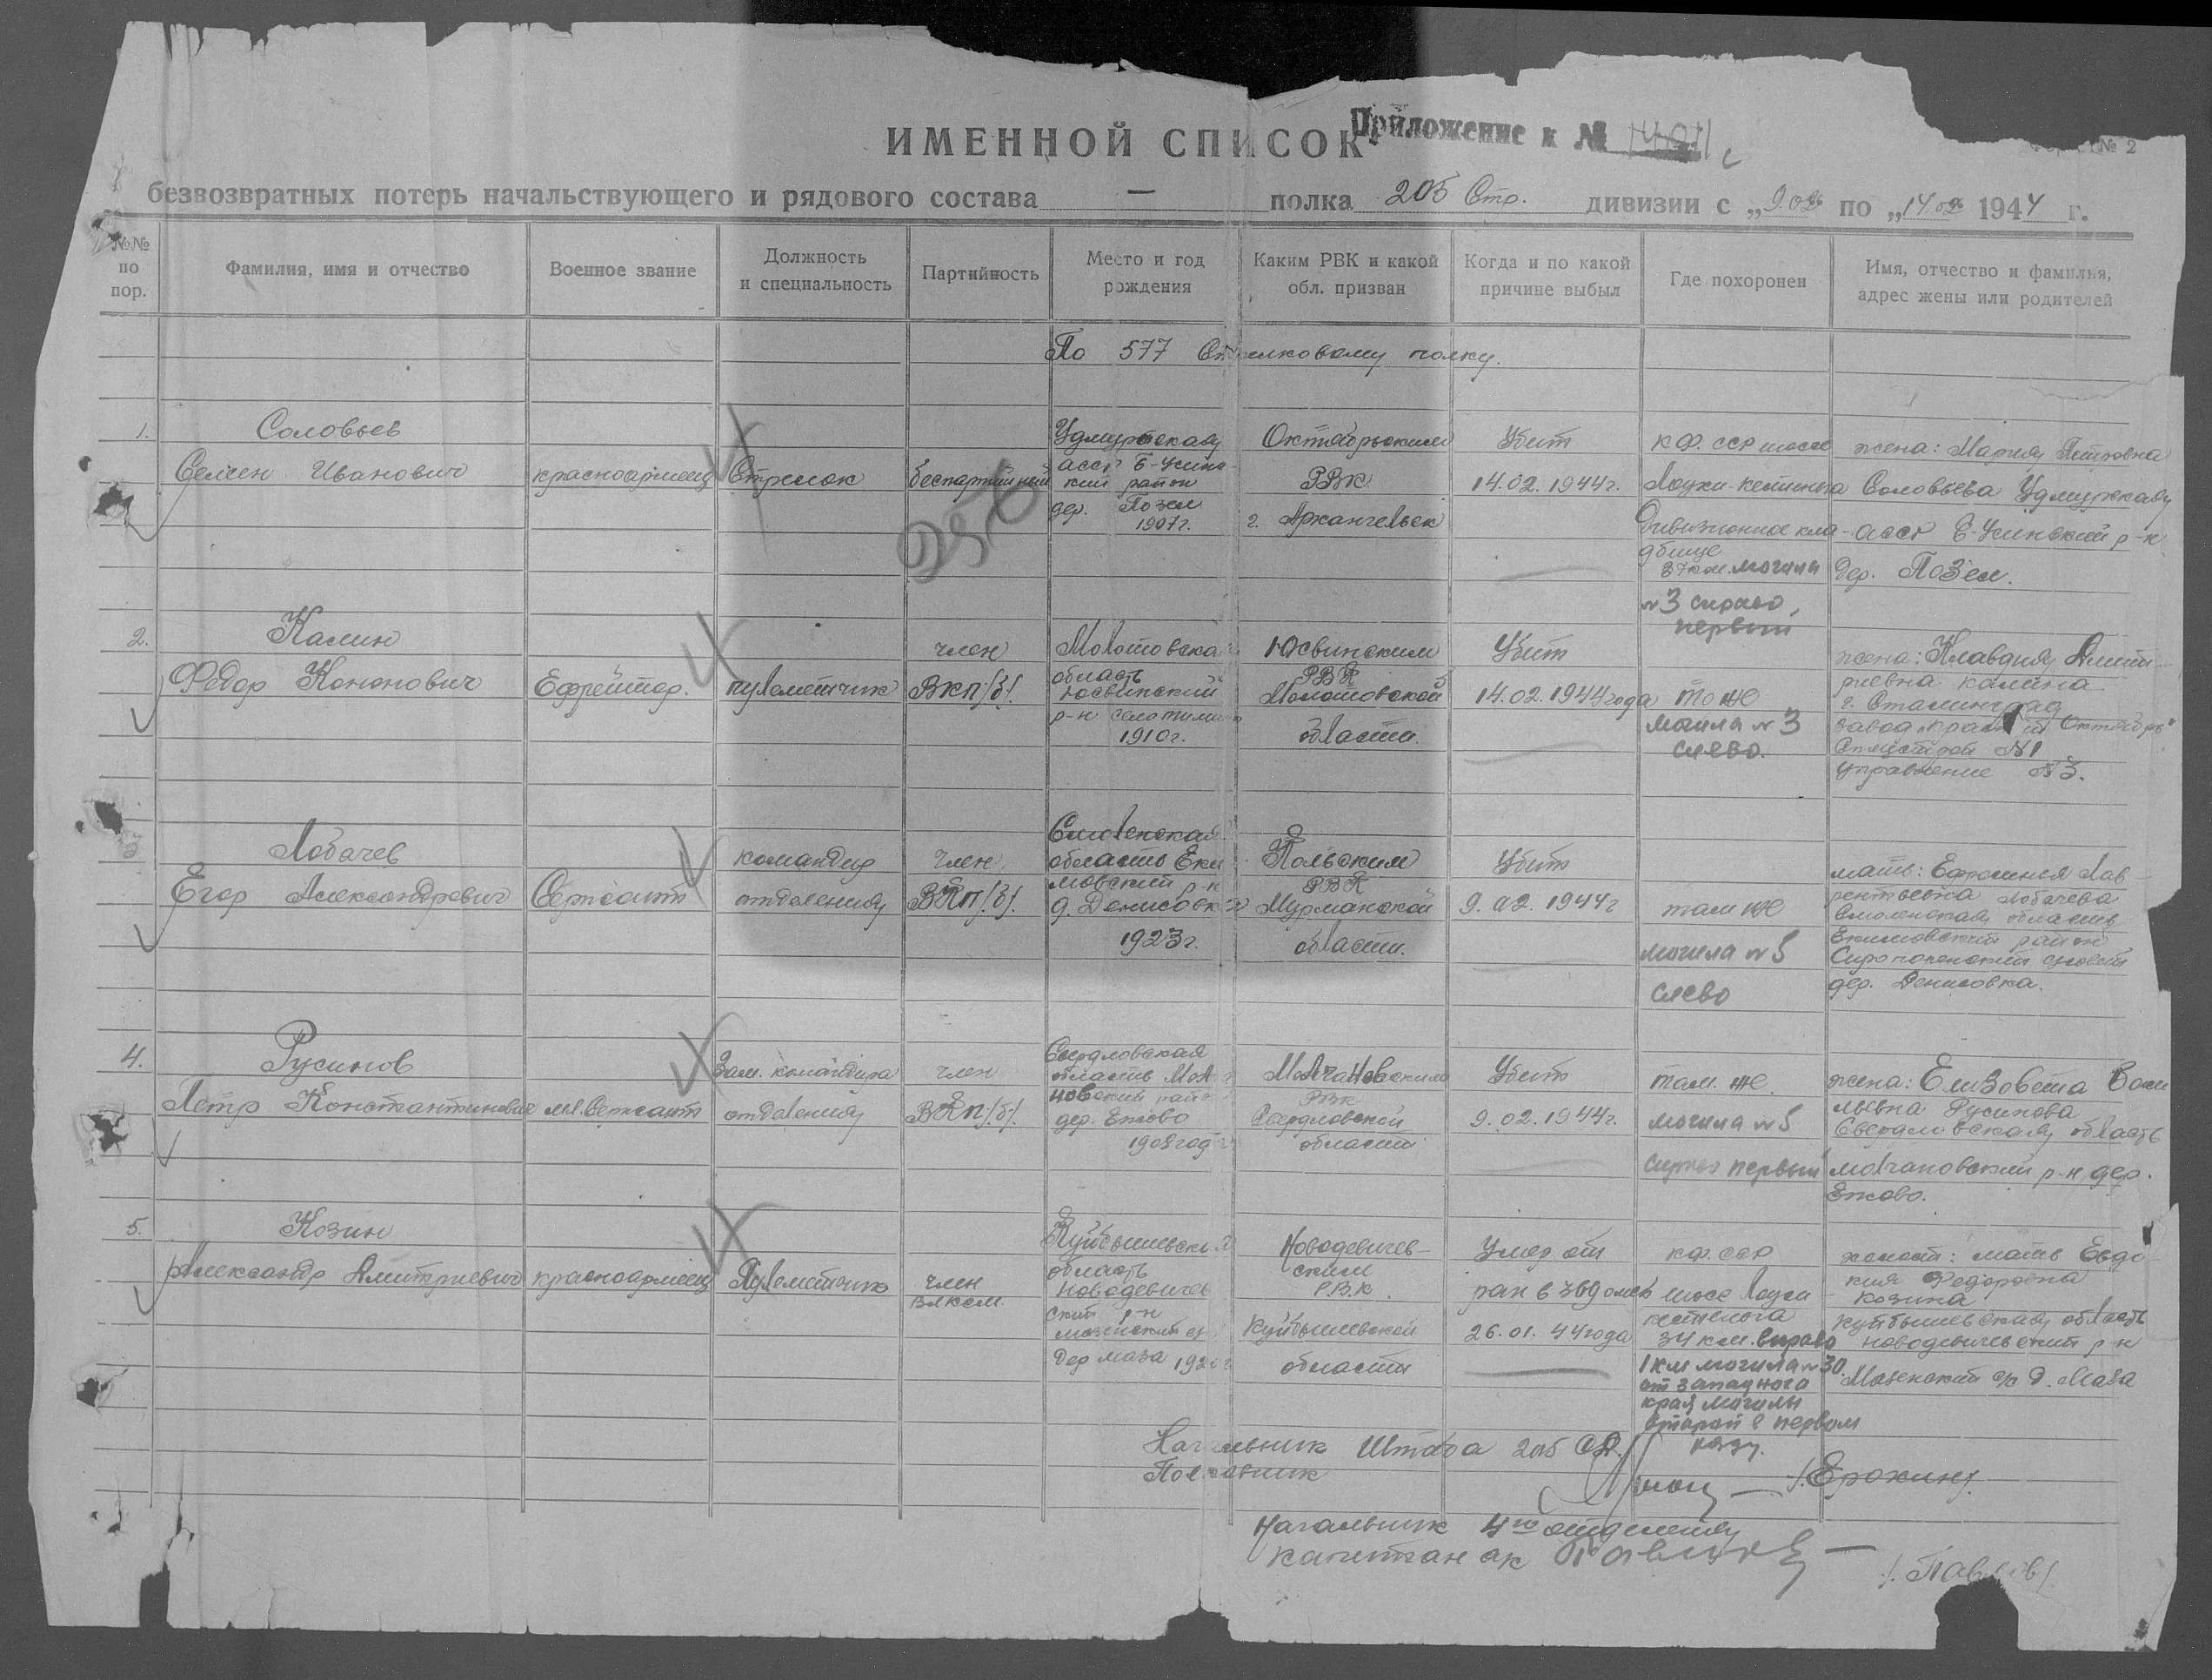 Приложение к №
№ 2
ИМЕННОЙ СПИСОК
безвозвратных потерь начальствующего и рядового состава — полка 205 Стр. дивизии с „9.02 по „14.02 1944 г.
№№ по пор.
Фамилия, имя и отчество
Военное звание
Должность и специальность
Партийность
Место и год рождения
Каким РВК и какой обл. призван
Когда и по какой причине выбыл
Где похоронен
Имя, отчество и фамилия, адрес жены или родителей
По 577 Стрелковому полку.
1.
Соловьев
Семен Иванович
красноармеец
Стрелок
беспартийный
Удмуртская
асср Б-Усинс
кий район
дер. Позем
1907г.
Октябрьским
РВК
г. Архангельск
Убит
14.02.1944г.
КФ. ССР шоссе
Лоухи-кестеньга
Дивизионное кла-
дбище
37 км. могила
№3 справо,
первый
жена: Мария Петровна
Соловьева Удмуртская
асср Б-Усинский р-н
дер. Позем.
2.
Калин
Федор Кононович
Ефрейтор.
пулеметчик
член
ВКП/б/.
Молотовская
область
Юсвинский
р-н село
1910г.
Юсвинским
РВК
Молотовской
области.
Убит
14.02.1944года
то же
могила №3
слево.
жена: Клавдия Дмит-
риевна калина
г. Сталинград
завод „красный Октябрь"
Спецстрой №1
управление №3.
Лобачев
Егор Александрович
Сержант
командир
отделения
Член
ВКП/б/.
Смоленская
область Еки
мовский р-н
д. Денисовка
1923г.
Польским
РВК
Мурманской
области.
Убит
9.02.1944г
там же
могила №5
слево
мать: Ефросинья Лав-
рентьевна Лобачева
Смоленская область
Екимовский район
дер. Денисовка.
4.
Русинов
Петр Константинович
мл. Сержант
Зам. командира
отделения
член
ВКП/б/.
Свердловская
область Мол
новский район
дер. Ежово
1908год
Молчановским
РВК
Свердловской
области
Убит
9.02.1944г.
там. же
могила №5
справо первый
жена: Елизовета Васи
льевна Русинова
Свердловская область
молчановский р-н дер.
Ежово.
5.
Козин
Александр Дмитриевич
красноармеец
Пулеметчик
член
ВЛКСМ.
Куйбышевская
область
Новодевичев
ский р-н
мазенский с/
дер маза
Новодевичев-
ским
РВК.
Куйбышевской
области
Умер от
ран в 369 омсб
26.01.44года
кф. сср
шосс Лоухи
кестенога
34 км. вправо
1 км могила №30.
от западного
края могилы
второй в первом
ряду.
холост: мать Евдо
кия Федоровна
козина
куйбышевская область
новодевичевский р-н
Мазенский с/с д. Маза
Начальник Штаба 205 СД.
Полковник
/Ерохин/.
Начальник 4го отделения
капитан ак
/.Павлов/